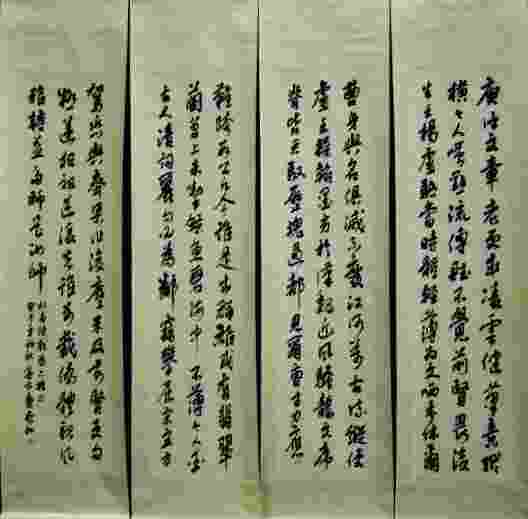 庾信文章老更成凌雲健筆意縱
橫今人嗤點流傳賦不覺前賢畏後
生王楊盧駱當時體輕薄為文哂未休爾
曹身與名俱滅不廢江河萬古流縱使
盧王操翰墨劣於漢魏近風騷龍文虎
脊皆君馭歷塊過都見爾曹才力應
難跨數公凡今誰是出群雄或看翡翠
蘭苕上未掣鯨魚碧海中不薄今人愛
古人清詞麗句必為鄰竊攀屈宋宜方
駕恐與齊梁作後塵未及前賢更勿
疑遞相祖述復先誰別裁偽體親風
雅轉益多師是汝師